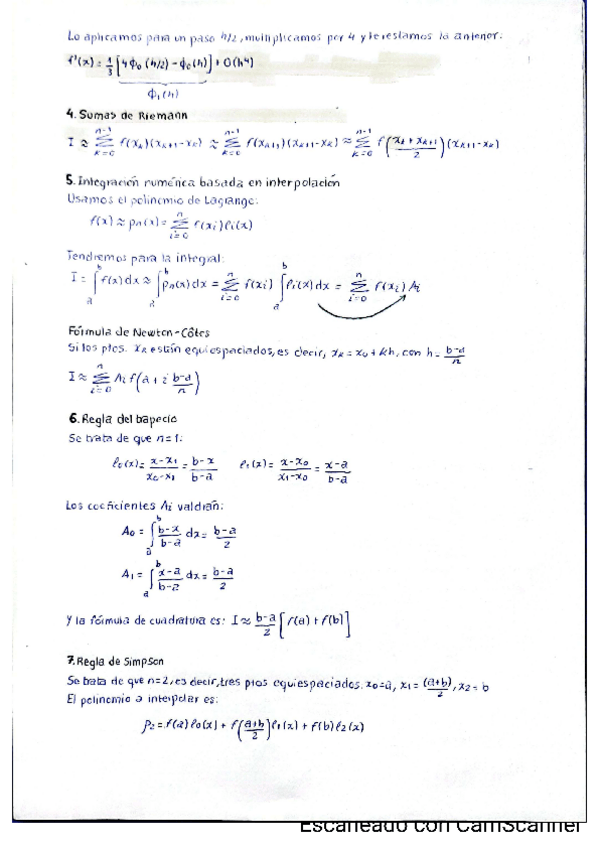 Lo aplicamos para un paso h/2, multiplicamos por 4 y le restamos la anterior:
f'(x) = 1/3 [4ϕ₀(h/2) − ϕ₀(h)] + O(h⁴)
ϕ₁(h)
4. Sumas de Riemann
I ≈ ∑_{k=0}^{n-1} f(x_k)(x_{k+1} − x_k) ≈ ∑_{k=0}^{n-1} f(x_{k+1})(x_{k+1} − x_k) ≈ ∑_{k=0}^{n-1} f((x_k + x_{k+1})/2)(x_{k+1} − x_k)
5. Integración numérica basada en interpolación
Usamos el polinomio de Lagrange:
f(x) ≈ p_n(x) = ∑_{i=0}^{n} f(x_i) l_i(x)
Tendremos para la integral:
I = ∫_a^b f(x) dx ≈ ∫_a^b p_n(x) dx = ∑_{i=0}^{n} f(x_i) ∫_a^b l_i(x) dx = ∑_{i=0}^{n} f(x_i) A_i
Fórmula de Newton-Côtes
Si los ptos. x_k están equiespaciados, es decir, x_k = x_0 + kh, con h = (b-a)/n
I ≈ ∑_{i=0}^{n} A_i f(a + i (b-a)/n)
6. Regla del trapecio
Se trata de que n=1:
l₀(x) = (x-x₁)/(x₀-x₁) = (b-x)/(b-a) l₁(x) = (x-x₀)/(x₁-x₀) = (x-a)/(b-a)
Los coeficientes A_i valdrán:
A₀ = ∫_a^b (b-x)/(b-a) dx = (b-a)/2
A₁ = ∫_a^b (x-a)/(b-a) dx = (b-a)/2
Y la fórmula de cuadratura es: I ≈ (b-a)/2 [f(a) + f(b)]
7. Regla de Simpson
Se trata de que n=2, es decir, tres ptos equiespaciados. x₀=a, x₁ = (a+b)/2, x₂ = b
El polinomio a interpolar es:
p₂ = f(a) l₀(x) + f((a+b)/2) l₁(x) + f(b) l₂(x)
Escaneado con CamScanner